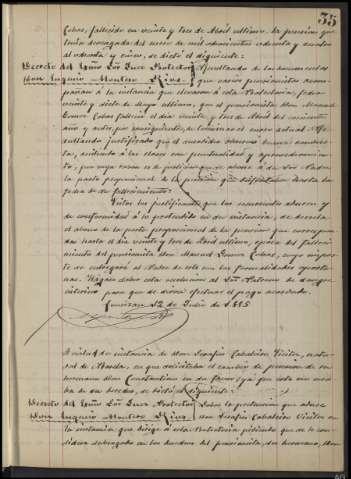 35
Cobas, fallecido en veinte y tres de Abril último, la pension que
tenia devengada del enero de mil ochocientos ochenta y
ochenta y cinco, se dictó el siguiente:
Decreto del Exmo Sor Juez Protector Resultando de los documentos
Don Eugenio Montero Rios. que varios pensionistas acom-
pañan á la instancia que elevaron á esta Protectoria, fecha
veinte y siete de Mayo último, que el pensionista Don Manuel
Gomez Cobas falleció el dia veinte y tres de Abril del corriente
año y antes, por consiguiente, de terminar el curso actual. Re-
sultando justificado que el susodicho observó buena conduc-
ta, asistiendo á las clases con puntualidad y aprovechamien-
to, por cuya razon es de justicia que se abone á su Sor Padre
la parte proporcional de la pension que disfrutaba hasta la
fecha de su fallecimiento.
Vistos los justificantes que los recurrentes aducen y
de conformidad á lo pretendido en su instancia, se decreta
el abono de la parte proporcional de la pension que correspon-
da hasta el dia veinte y tres de Abril último, época del falleci-
miento del pensionista Don Manuel Gomez Cobas, cuyo impor-
te se entregará al Padre de este con las formalidades oportu-
nas. Hágase saber esta resolucion al Sor Patrono de
interino para que se sirva efectuar el pago acordado.
12 de Julio de 1885
A virtud de instancia de Don Serafin Caballero Vicitez, natu-
ral de en que solicitaba el cambio de pension de su
hermano Don Constantino en su favor, y por esta sin mer-
ma de sus haberes, se dictó el siguiente:
Decreto del Exmo Sor Juez Protector Dada la pretension que aduce
Don Eugenio Montero Rios. Don Serafin Caballero Vicitez en
la instancia que dirige á esta Protectoria pidiendo que se le con-
sidere subrogado en los derechos del pensionista, su hermano, Don